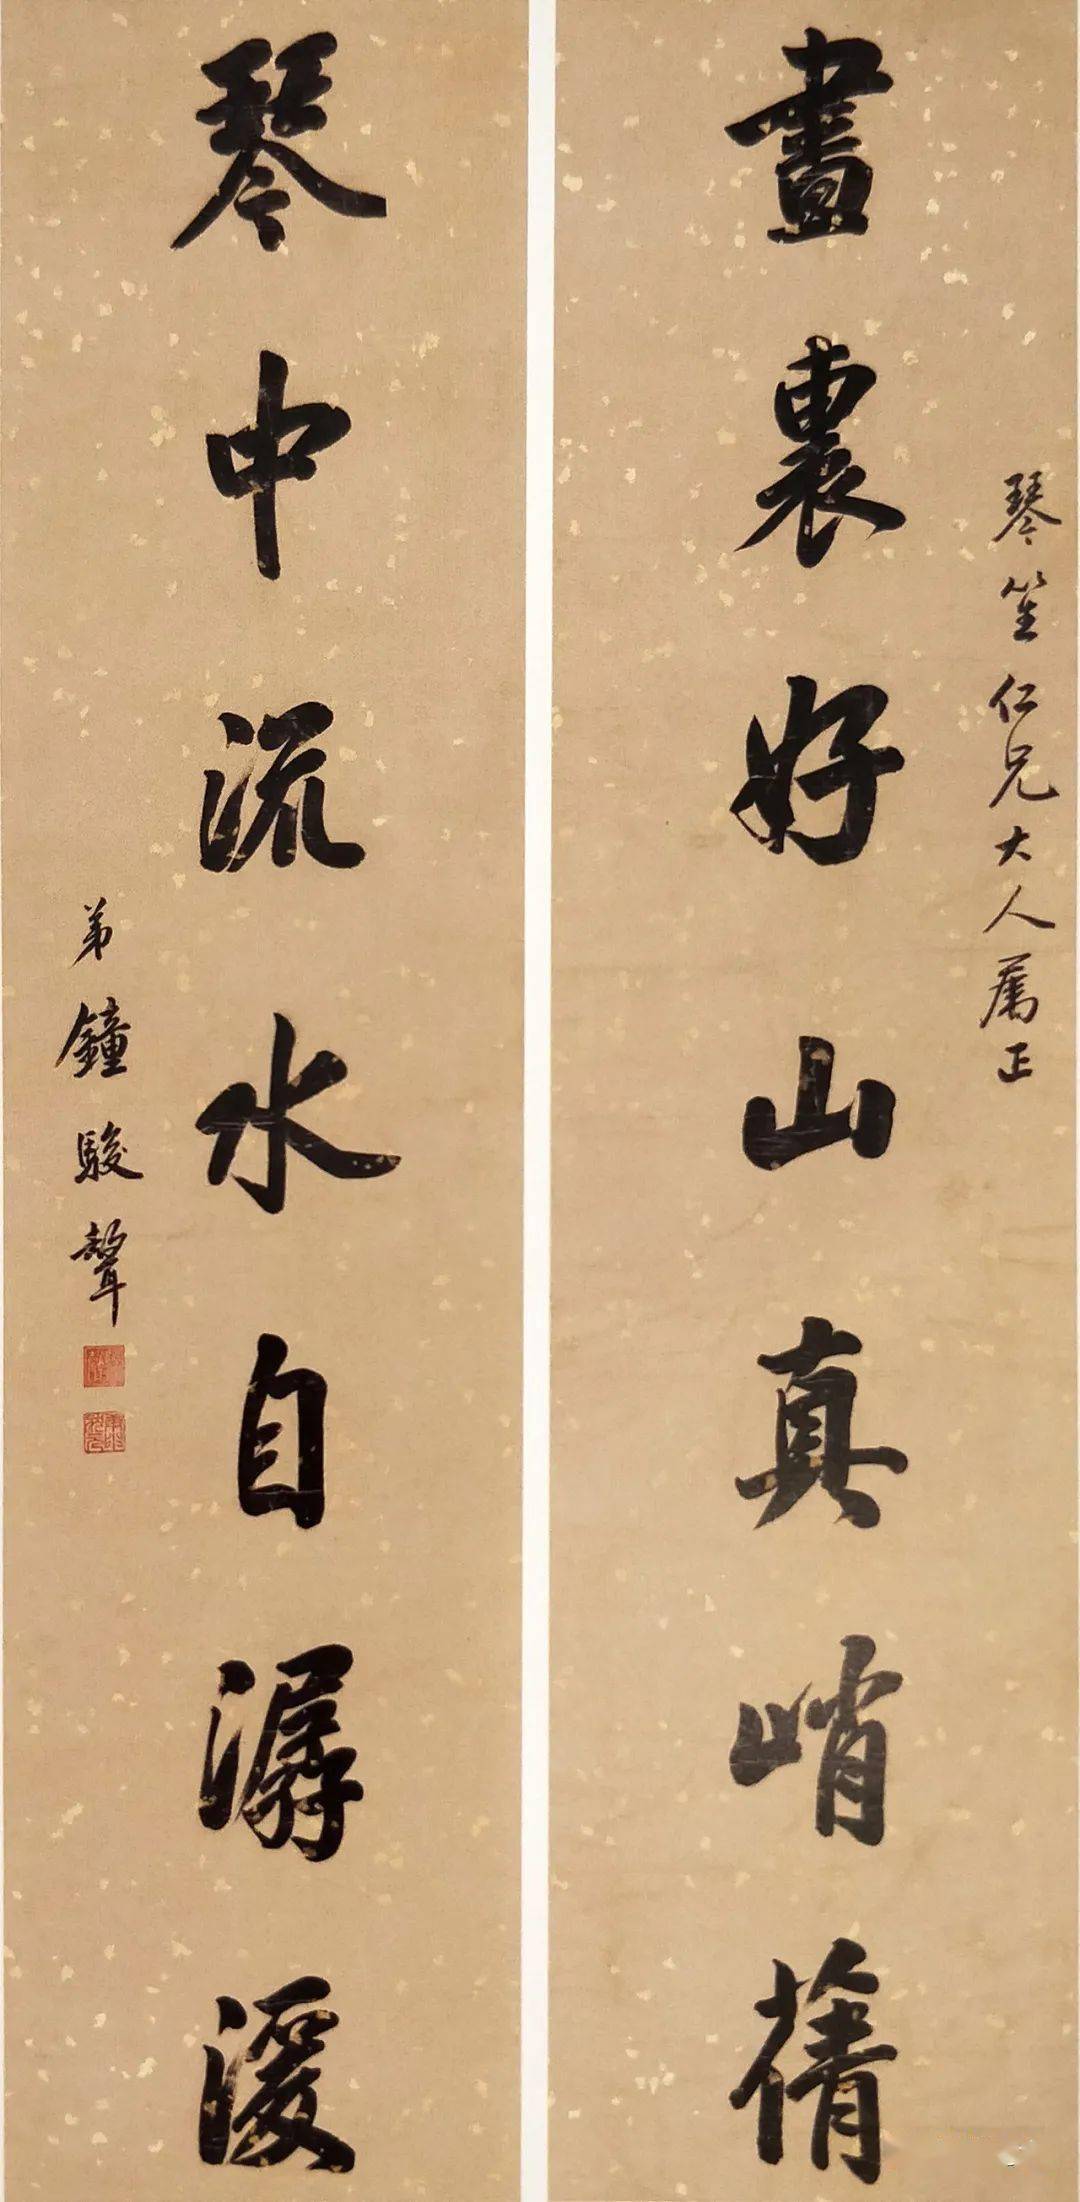 琴笙仁兄大人屬正
畫裏好山真峭蒨
琴中流水自潺湲
弟鐘駿聲